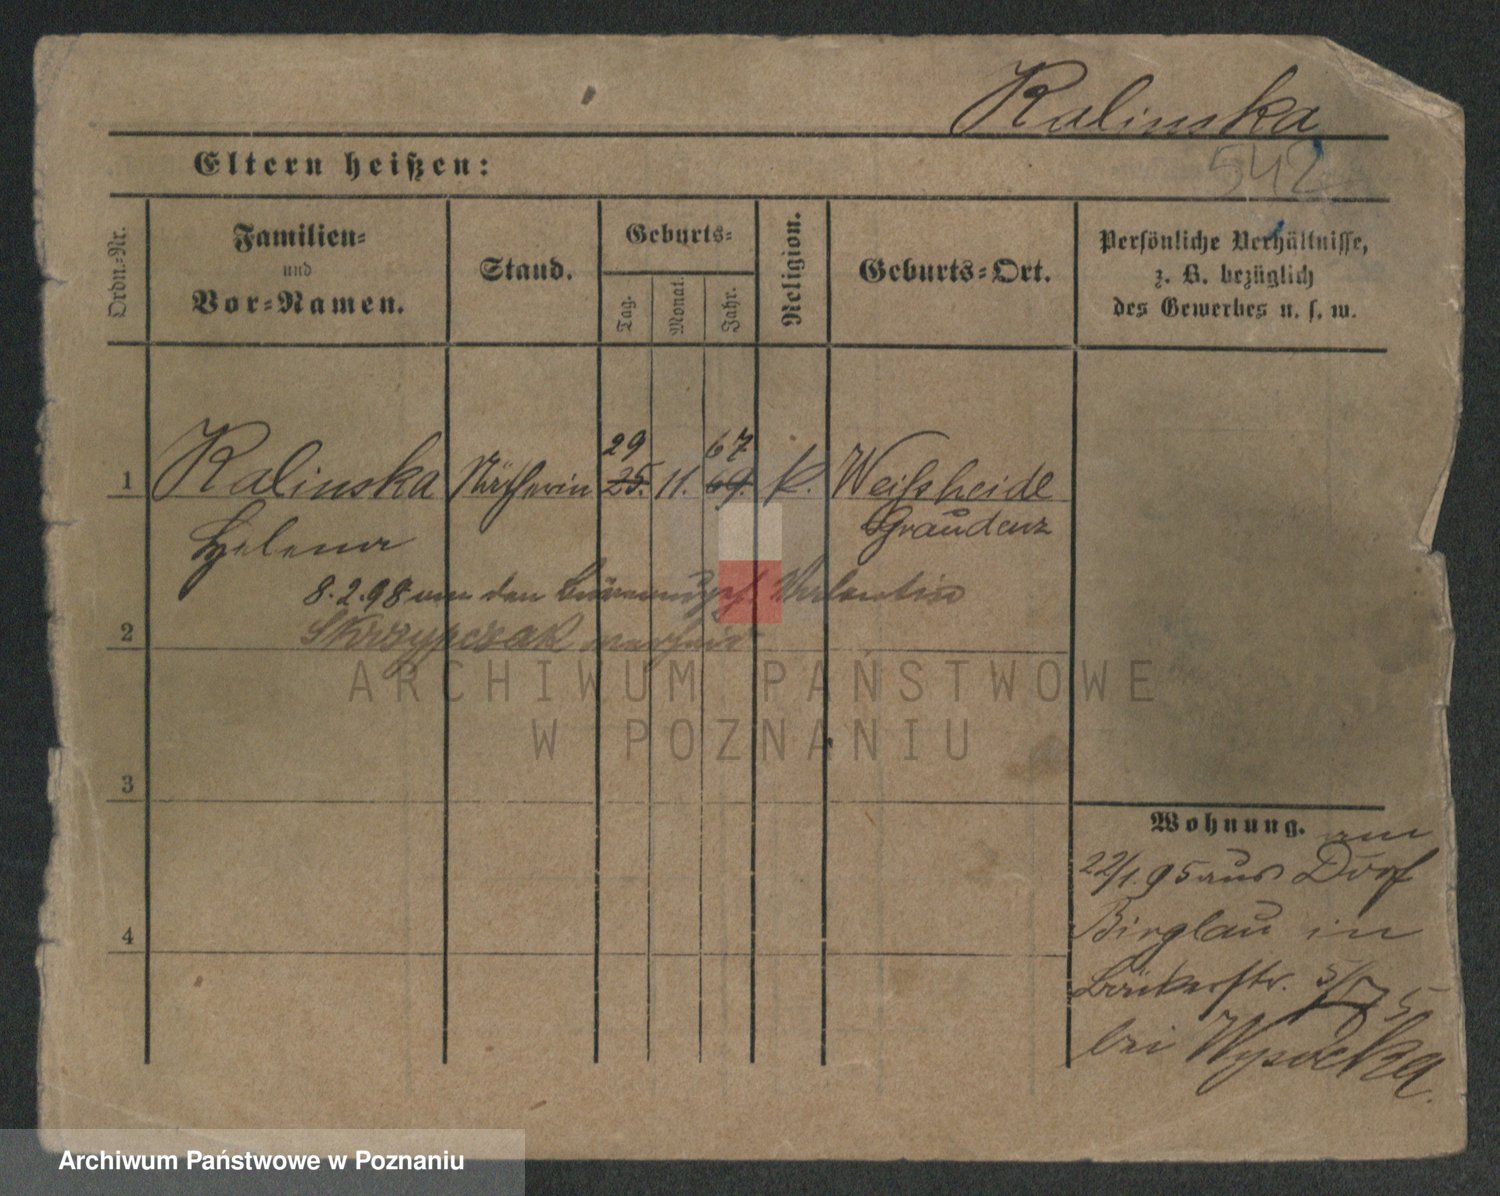 Kalinska
542
Eltern heißen:
Ordn.-Nr.
Familien-
und
Vor-Namen.
Stand.
Geburts-
Tag.
Monat.
Jahr.
Religion.
Geburts-Ort.
Persönliche Verhältnisse,
z. B. bezüglich
des Gewerbes u. s. w.
29 67
1 Kalinska Nätherin 25. 11. 69. k. Weissheide
Helena Graudenz
8.2.98 an den Valentin
2 Skrzypczak verheir
ARCHIWUM PAŃSTWOWE
W POZNANIU
3
4
Wohnung. am
22/1.95 aus Dorf
Birglau in
Bäckerstr. 5/7 5
bei Wysocka.
Archiwum Państwowe w Poznaniu